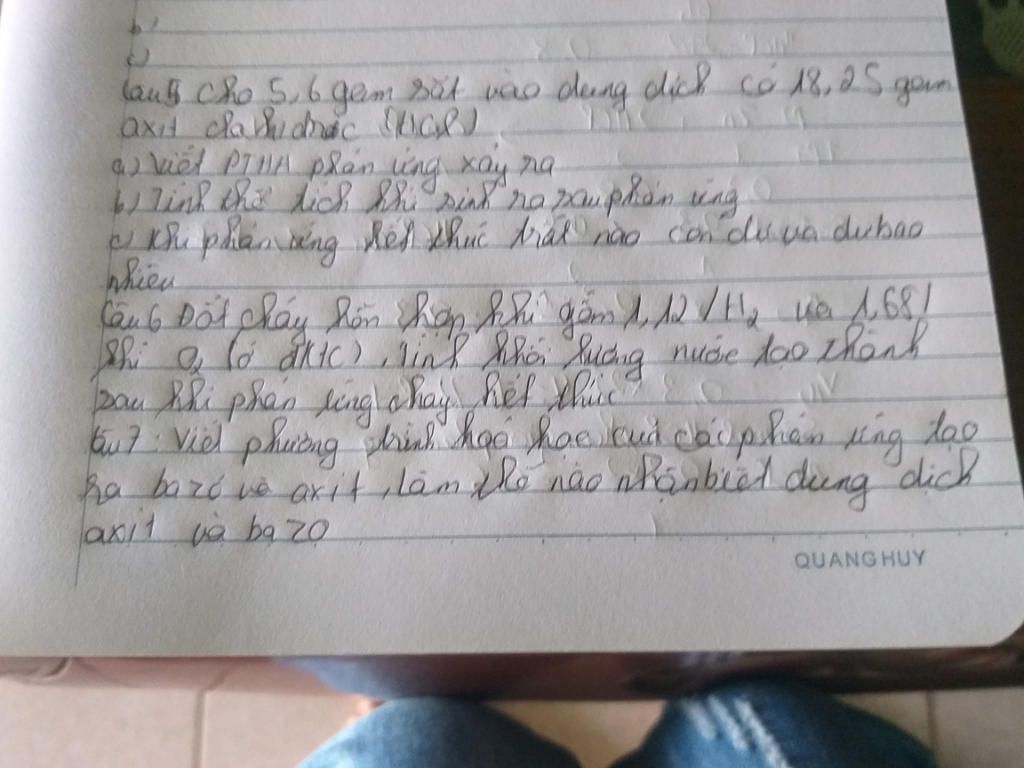 b,
c)
Câu5 cho 5,6 gam sắt vào dung dịch có 18,25 gam
axit clohiđric (HCl)
a) Viết PTHH phản ứng xảy ra
b) Tính thể tích khí sinh ra sau phản ứng
c) Khi phản ứng kết thúc chất nào còn dư và dư bao
nhiêu
Câu6 Đốt cháy hỗn hợp khí gồm 1,12 l H2 và 1,68 l
khí O2 (ở đktc), Tính khối lượng nước tạo thành
sau khi phản ứng cháy kết thúc
Câu7: Viết phương trình hoá học của các phản ứng tạo
ra bazơ và axit, làm thế nào nhận biết dung dịch
axit và bazo
QUANG HUY